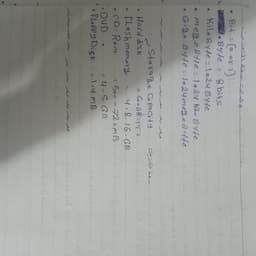 • Bit (0 or 1)
• Byte = 8 bits
• Kilo Byte = 1024 Byte
• Mega Byte = 1024 Kilo Byte
• Giga Byte = 1024 Mega Byte
Storage Capacity
• Hard disk
• Flash memory : 4.8.16 GB
• CD-Rom
• DVD : 4.5 GB
• Floppy Disk : 1.4 MB